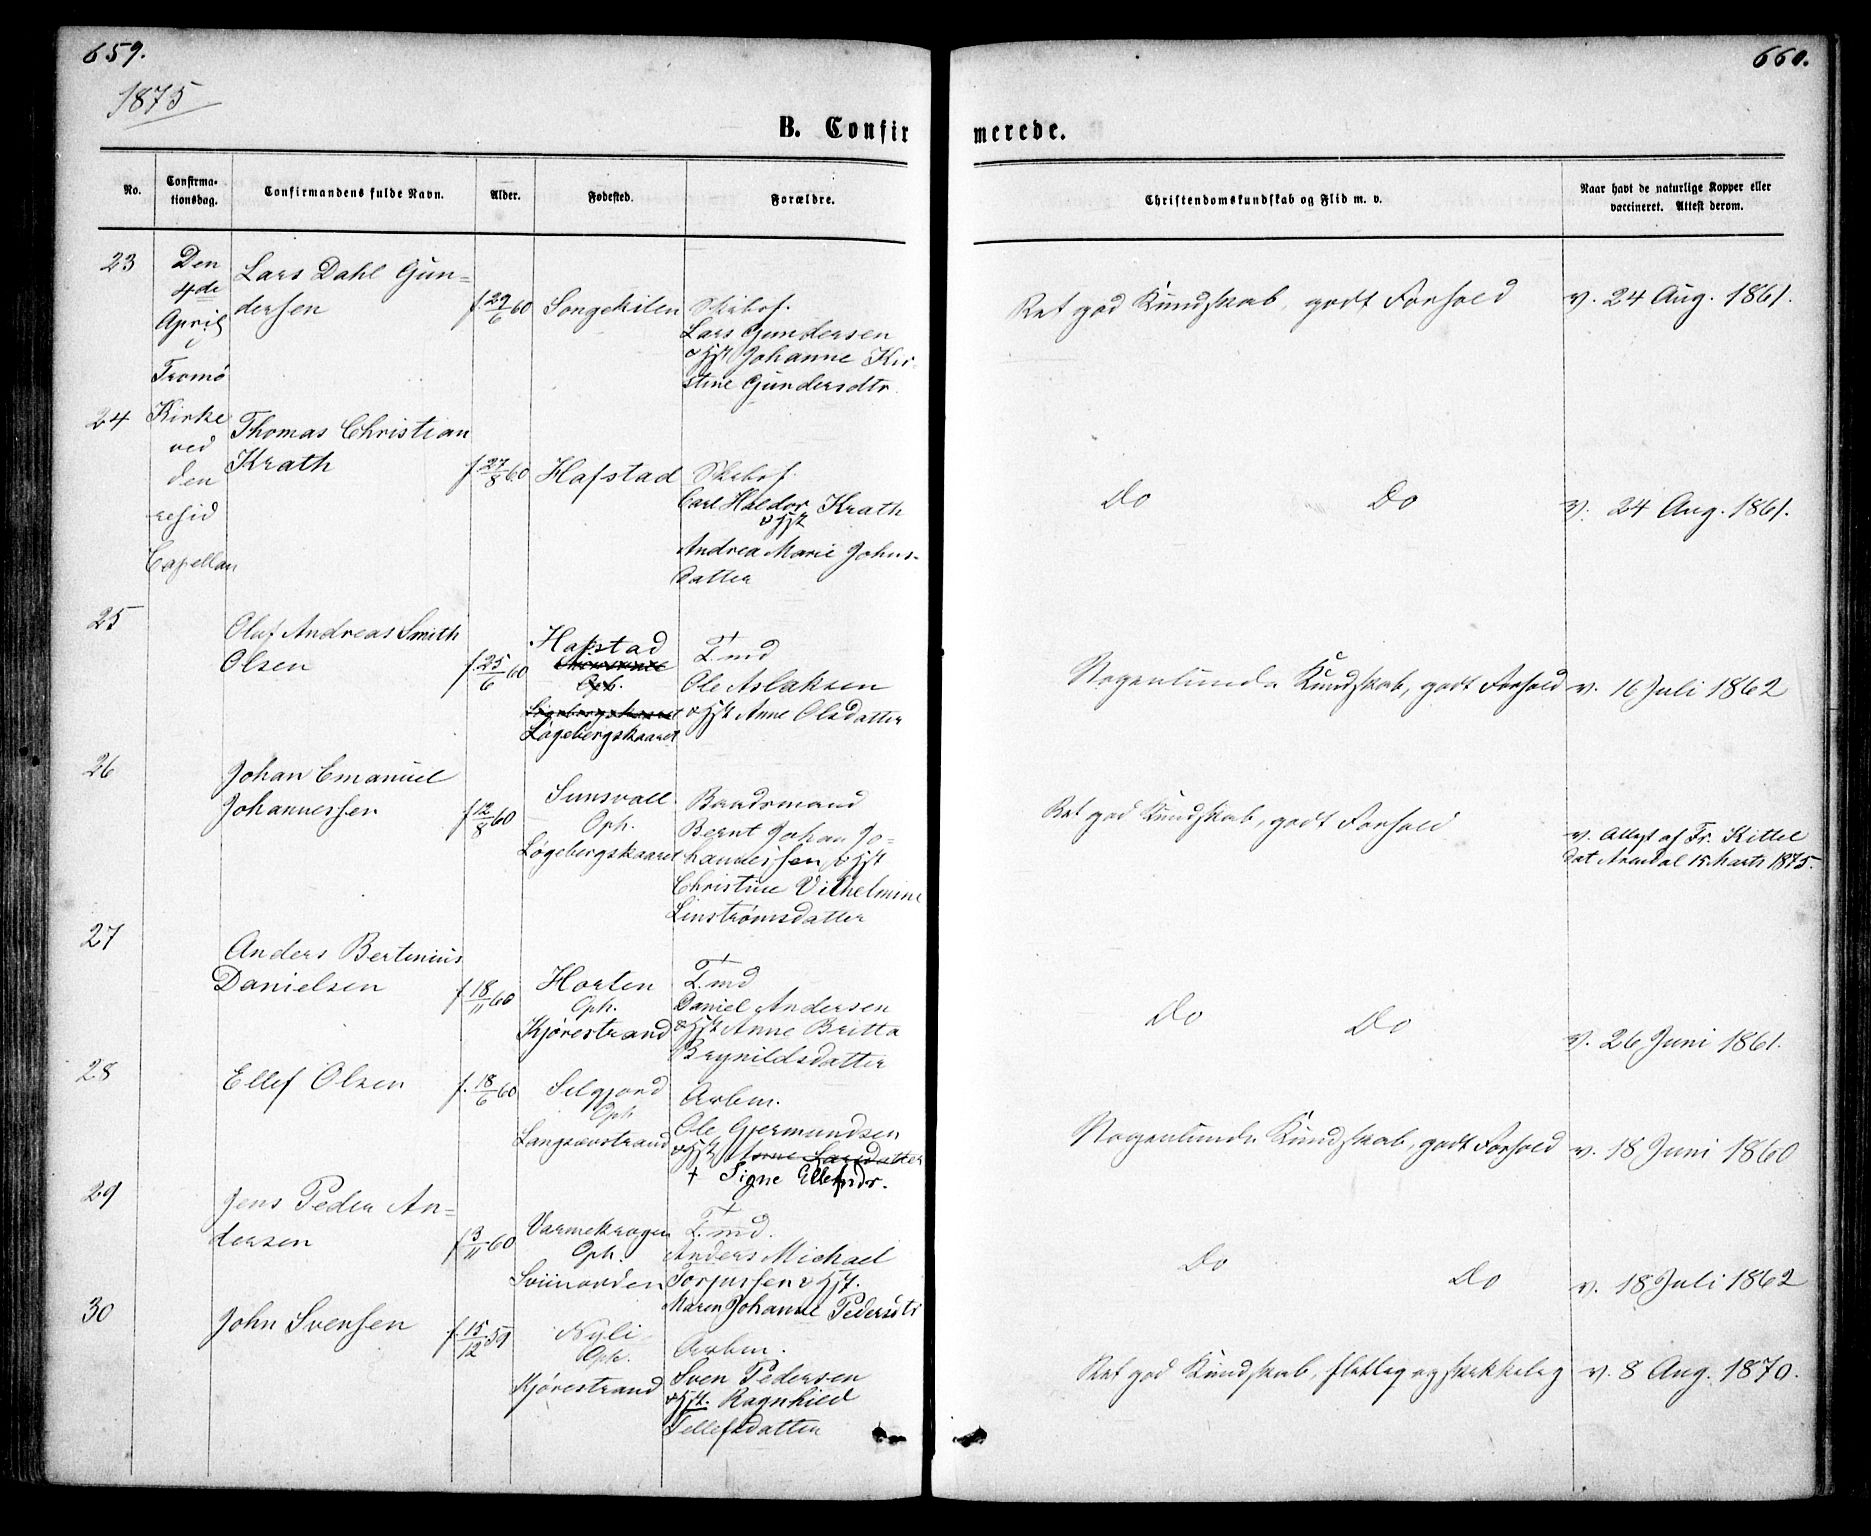 659.
660.
1875
B. Confirmerede.
No.
Confirma-
tionsdag.
Confirmandens fulde Navn.
Alder.
Fødested.
Forældre.
Christendomskundskab og Flid m. v.
Naar havt de naturlige Kopper eller
vaccineret. Attest derom.
Den
4de
April
i
Tromø
Kirke
ved
den
resid
Capellan
23
Lars Dahl Gun-
dersen
f. 29/6 60
Songekilen
Skibsf.
Lars Gundersen
Johanne Kir-
stine Gundersdtr.
Ret god Kundskab, godt Forhold
v. 24 Aug. 1861.
24
Thomas Christian
Krath
f. 27/8 60
Hafstad
Skibsf.
Carl Haldor Krath
Andrea Marie Johns-
datter
Do Do
v. 24 Aug. 1861.
25
Oluf Andreas Smith
Olsen
f. 25/6 60
Hafstad
Oph.
Løgebergskaaret
T.md
Ole Aslaksen
Anne Olsdatter
Nogenlunde Kundskab, godt Forhold
v. 16 Juli 1862
26
Johan Emanuel
Johannessen
f. 12/8 60
Sunsvall
Oph.
Løgebergskaaret
Baadsmand
Bernt Johan Jo-
hannessen
Christine Vilhelmine
Linstrømsdatter
Ret god Kundskab, godt Forhold
v. Attest af Fr. Kittel
dat Arendal 15 Marts 1875.
27
Anders Bertinius
Danielsen
f. 18/11 60
Horten
Oph.
Kjørestrand
T.md
Daniel Andersen
Anne Britta
Brynildsdatter
Do Do
v. 26 Juni 1861.
28
Ellef Olsen
f. 18/6 60
Selgjord
Oph
Langsævstrand
Arbm.
Ole Gjermundsen
Larsdatter
+ Signe Ellefsdr.
Nogenlunde Kundskab, godt Forhold
v. 18 Juni 1860
29
Jens Peder An-
dersen
f. 3/11 60
Varmekrogen
Oph.
T.md.
Anders Michael
Torjussen
Maren Johanne Pedersdtr
Do Do
v. 18 Juli 1862
30
John Svensen
f. 15/12 59
Nyli
Oph.
Kjørestrand
Arbm.
Sven Pedersen
Ragnhild
Tellefsdatter
Ret god Kundskab, flittig og skikkelig
v. 8 Aug. 1870.